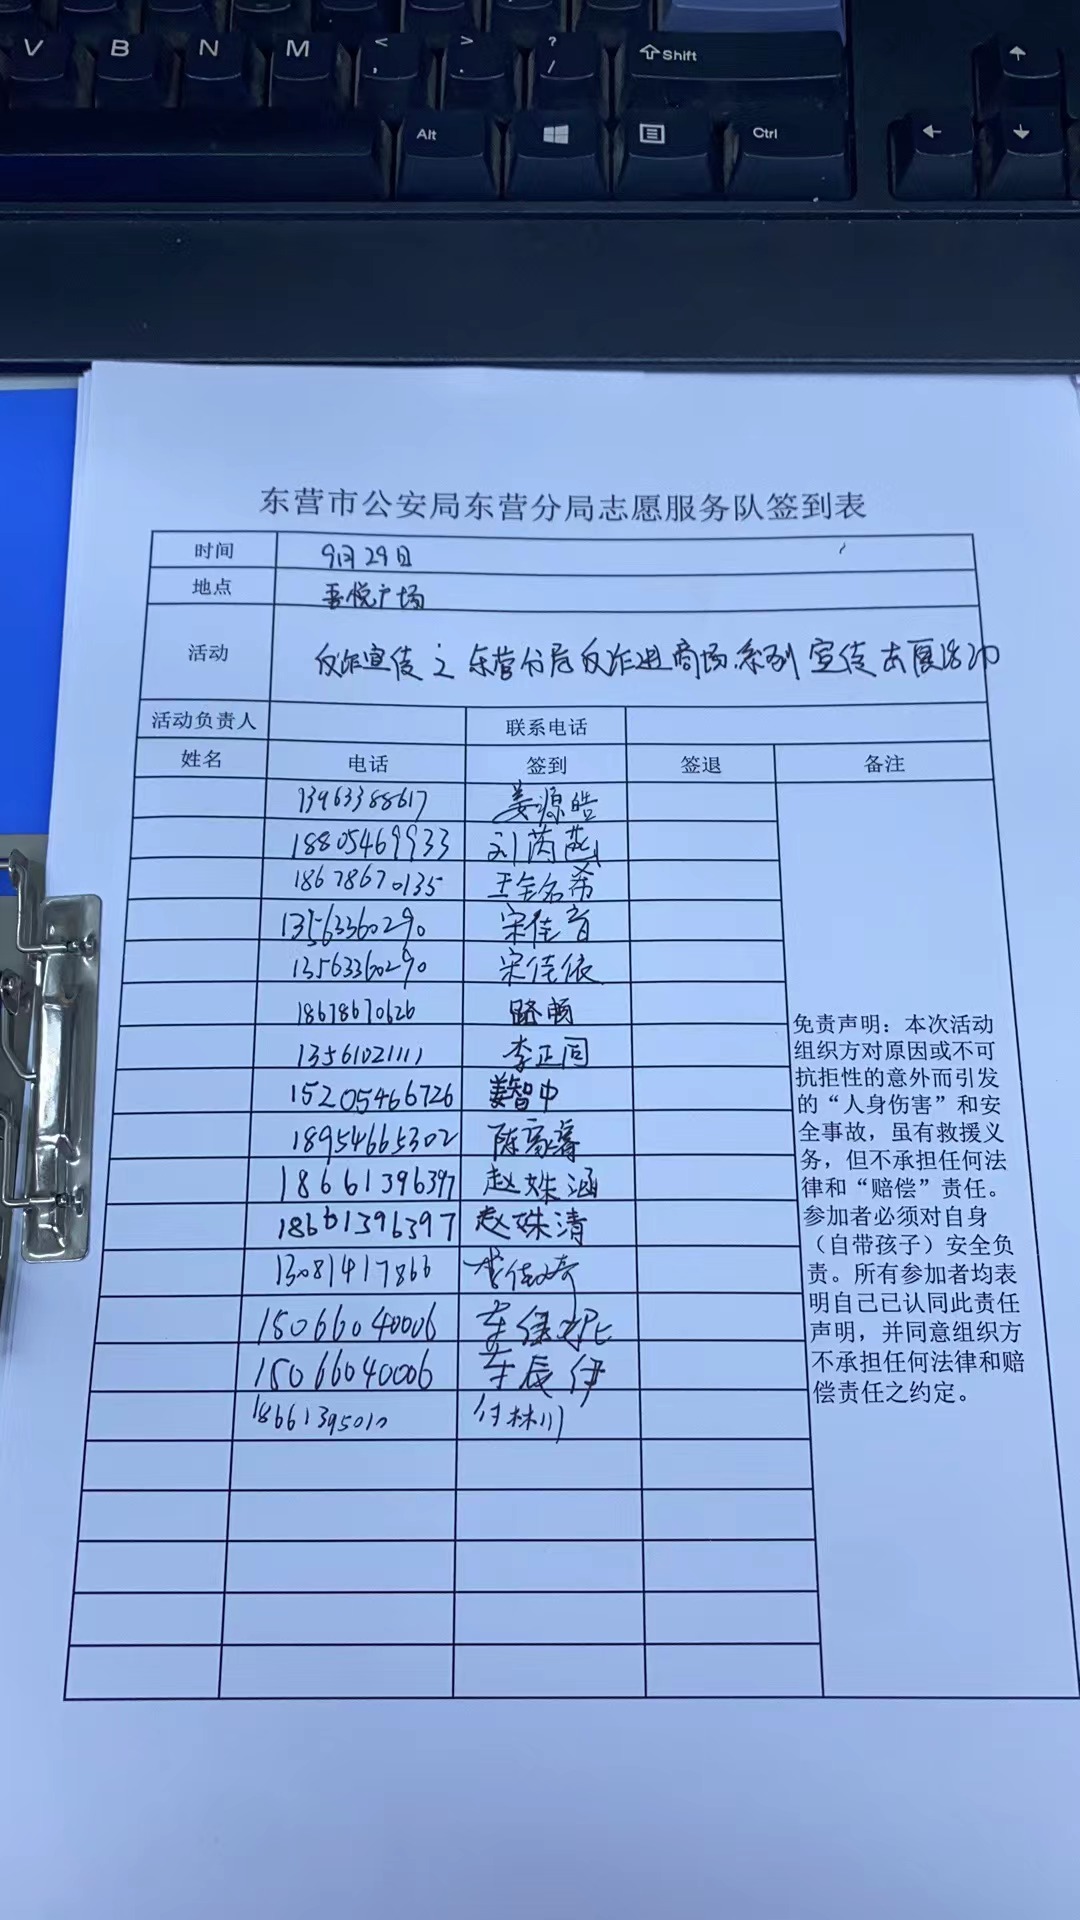 V B N M < , > . ? / Shift
Alt Ctrl
东营市公安局东营分局志愿服务队签到表
时间 9月29日
地点 吾悦广场
活动 反诈宣传之东营分局反诈进商场系列宣传志愿活动
活动负责人 联系电话
姓名 电话 签到 签退 备注
13963388617 姜源皓
18805469933 刘芮菡
18678670135 王全名希
13563360290 宋佳音
13563360290 宋佳依
18678670626 路畅
13561021111 李正同
15205466726 姜智中
18954665302 陈家馨
18661396397 赵姝涵
18661396397 赵姝清
13081417866
15066040006
15066040006 车辰伊
18661395010 付林川
免责声明：本次活动
组织方对原因或不可
抗拒性的意外而引发
的“人身伤害”和安
全事故，虽有救援义
务，但不承担任何法
律和“赔偿”责任。
参加者必须对自身
（自带孩子）安全负
责。所有参加者均表
明自己已认同此责任
声明，并同意组织方
不承担任何法律和赔
偿责任之约定。